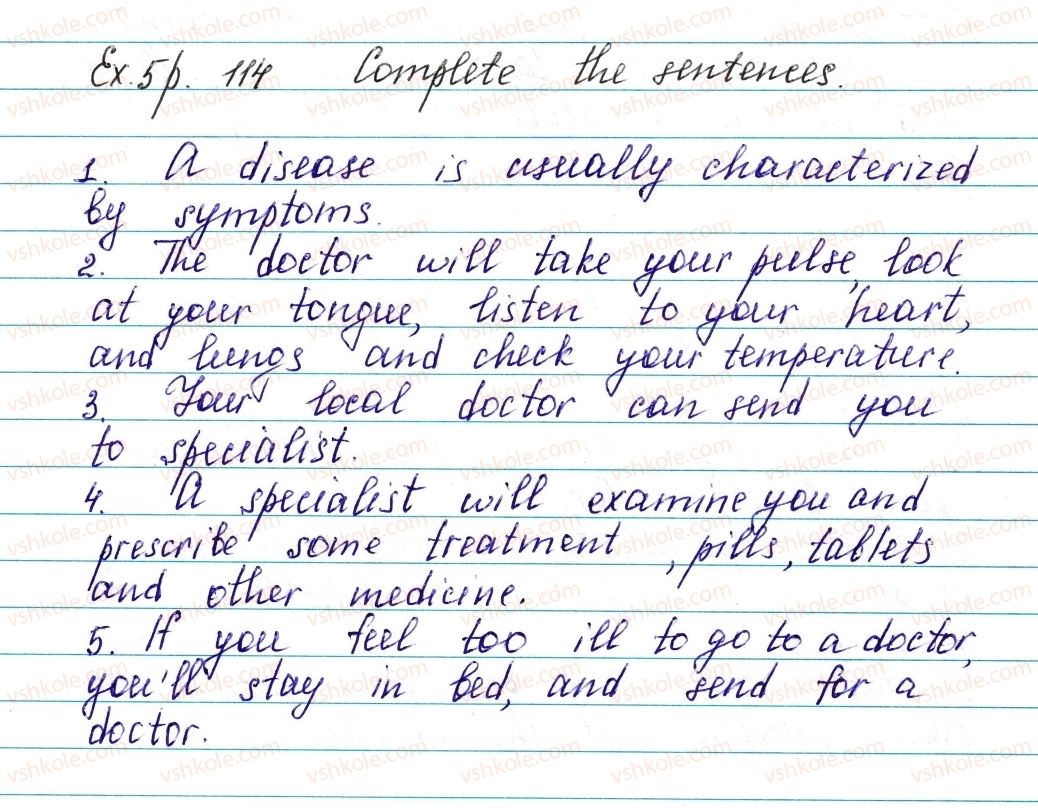 Ex. 5 p. 114 Complete the sentences.
1. A disease is usually characterized
by symptoms.
2. The doctor will take your pulse, look
at your tongue, listen to your heart,
and lungs and check your temperature.
3. Your local doctor can send you
to specialist.
4. A specialist will examine you and
prescribe some treatment, pills, tablets
and other medicine.
5. If you feel too ill to go to a doctor,
you'll stay in bed, and send for a
doctor.